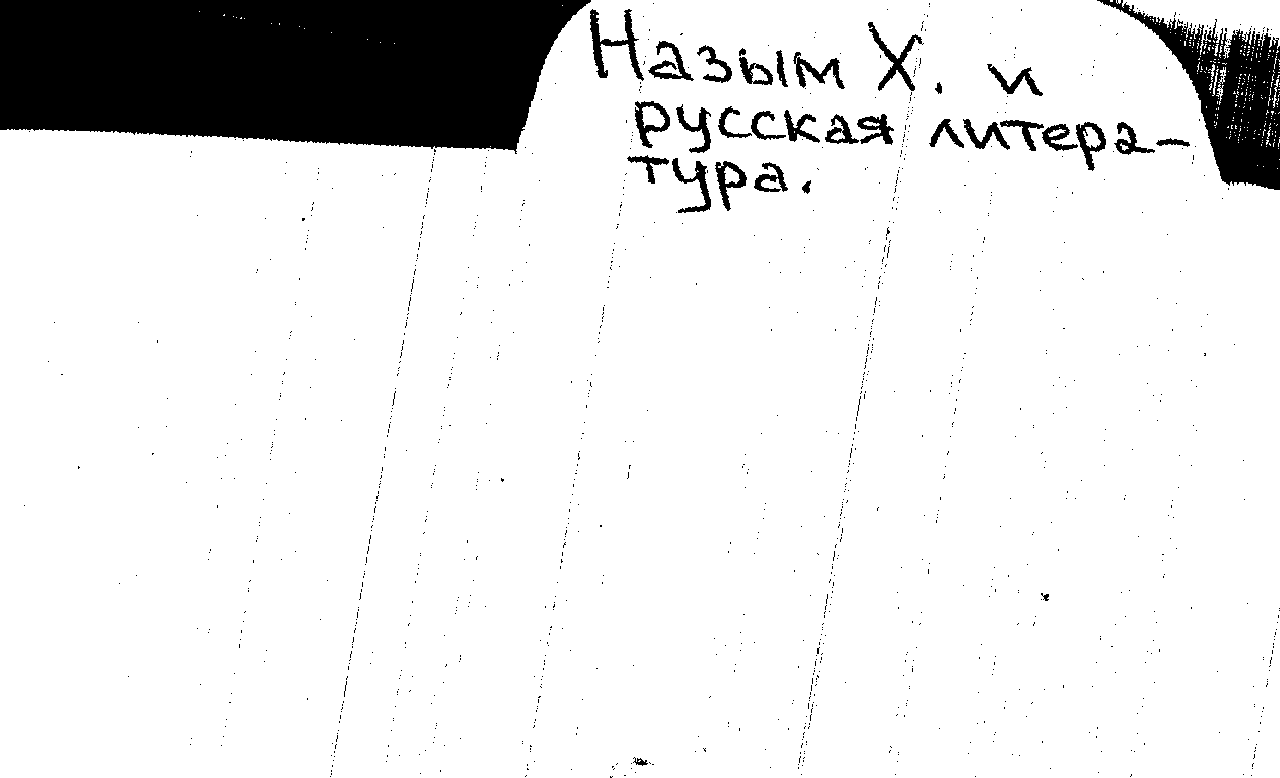 Назым Х. и
русская литера-
тура.